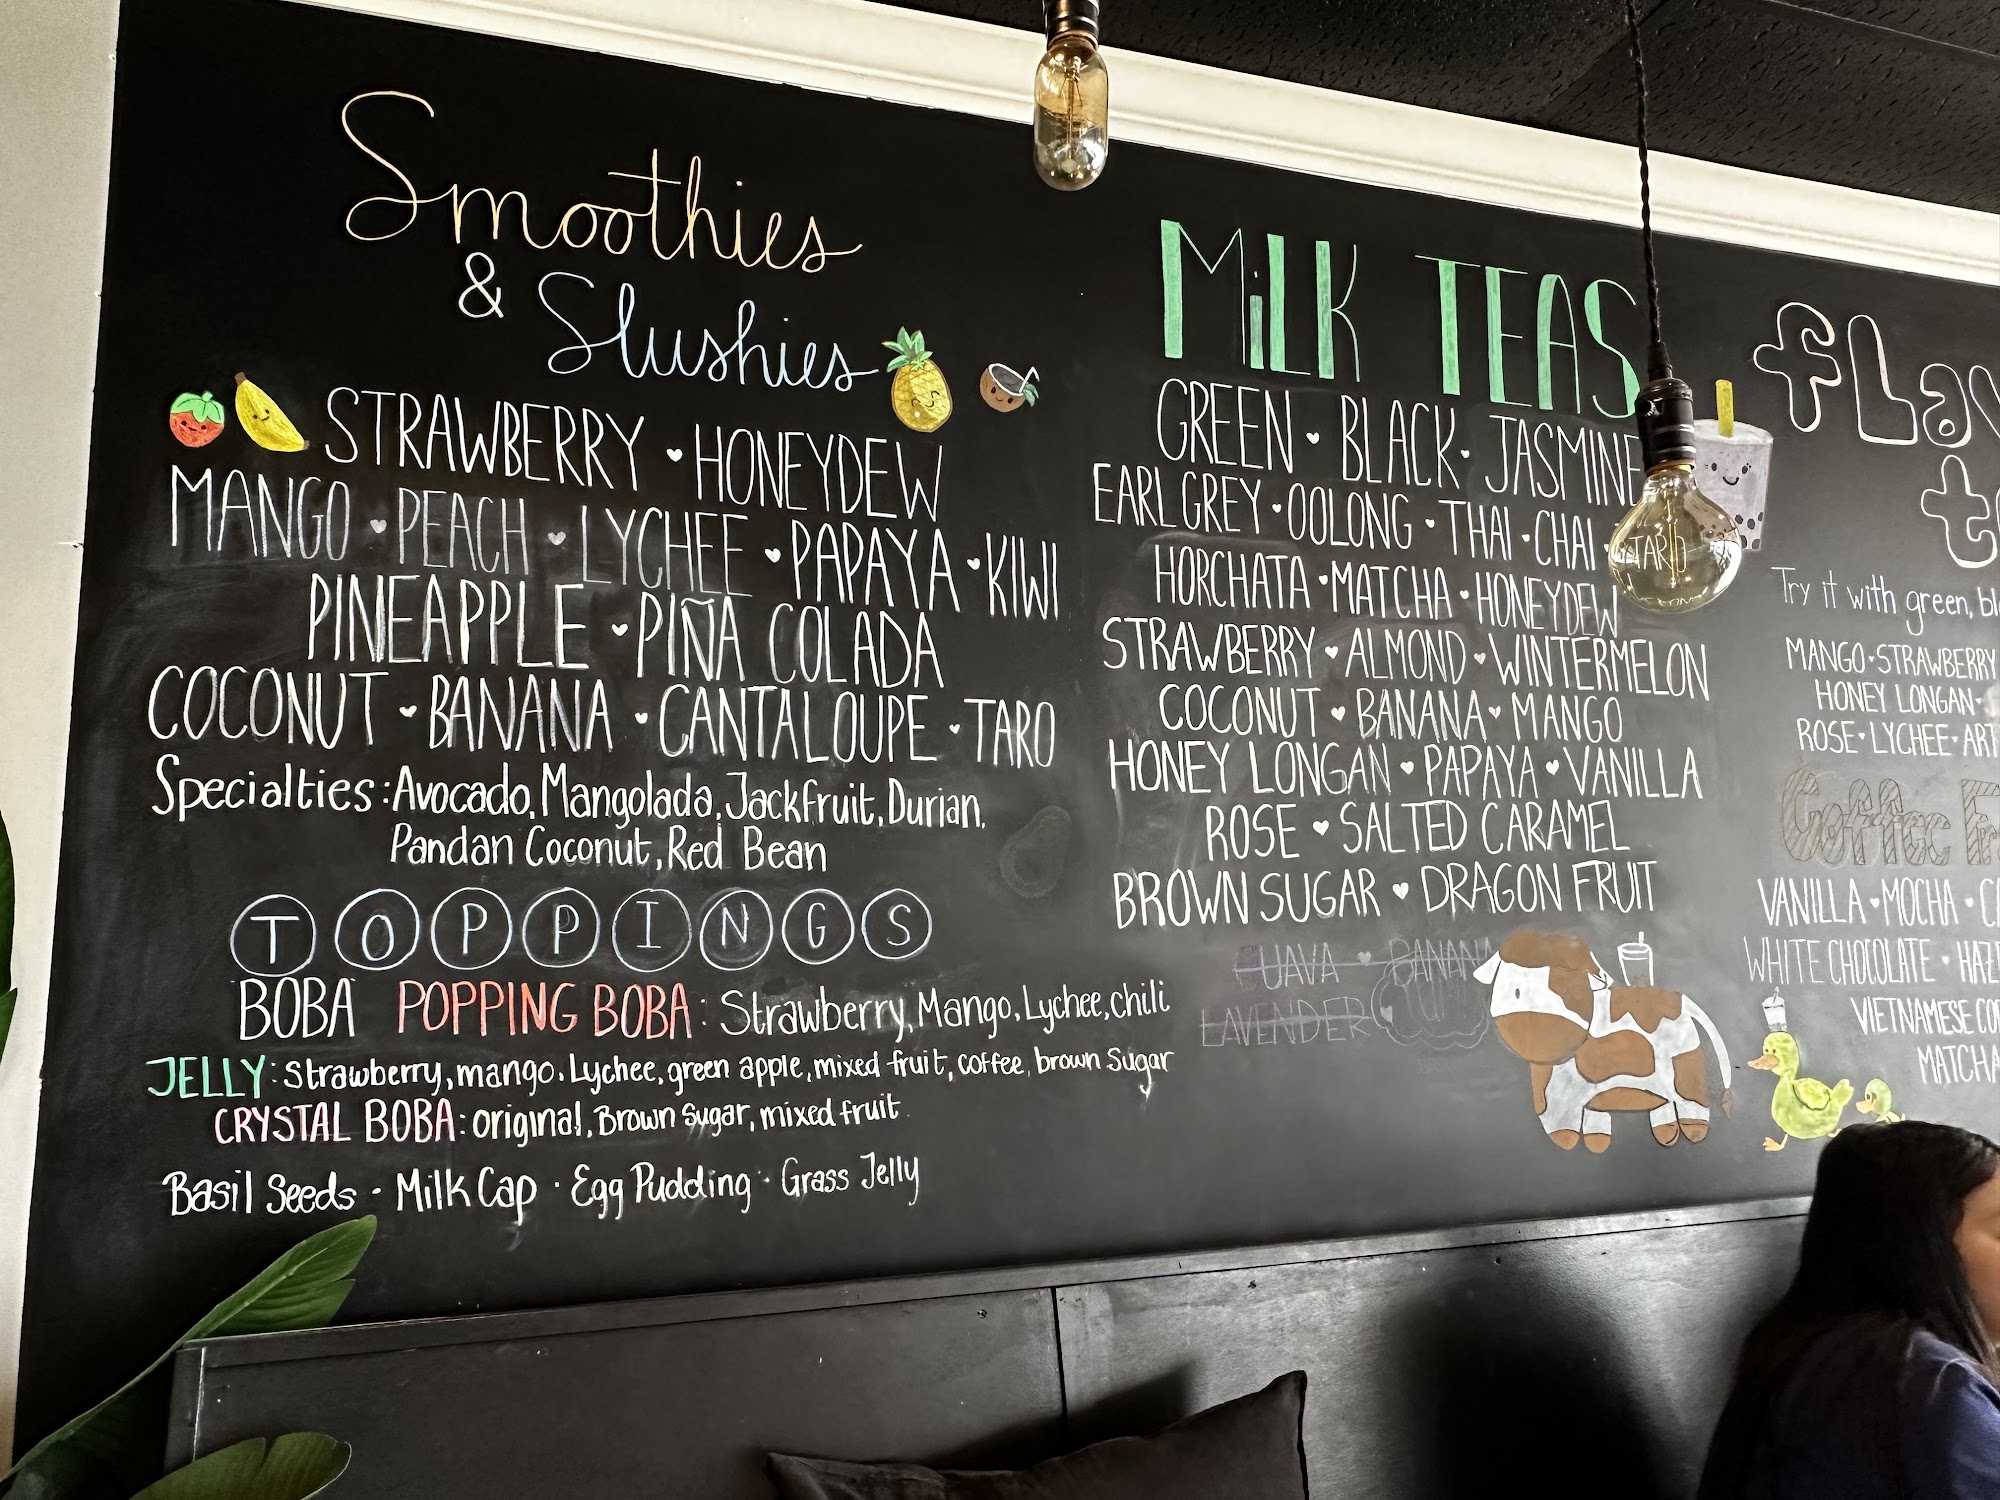 Smoothies
& Slushies
STRAWBERRY • HONEYDEW
MANGO • PEACH • LYCHEE • PAPAYA • KIWI
PINEAPPLE • PIÑA COLADA
COCONUT • BANANA • CANTALOUPE • TARO
Specialties: Avocado, Mangolada, Jackfruit, Durian,
Pandan Coconut, Red Bean
TOPPINGS
BOBA POPPING BOBA: Strawberry, Mango, Lychee, chili
JELLY: strawberry, mango, Lychee, green apple, mixed fruit, coffee, brown Sugar
CRYSTAL BOBA: original, Brown Sugar, mixed fruit
Basil Seeds • Milk Cap • Egg Pudding • Grass Jelly
MiLK TEAS
GREEN ♥ BLACK • JASMINE
EARL GREY • OOLONG • THAI • CHAI • TARO
HORCHATA • MATCHA • HONEYDEW
STRAWBERRY ♥ ALMOND ♥ WINTERMELON
COCONUT ♥ BANANA ♥ MANGO
HONEY LONGAN ♥ PAPAYA ♥ VANILLA
ROSE ♥ SALTED CARAMEL
BROWN SUGAR ♥ DRAGON FRUIT
GUAVA ♥ BANANA
LAVENDER
Try it with green,
MANGO • STRAWBERRY
HONEY LONGAN •
ROSE • LYCHEE •
Coffee
VANILLA • MOCHA •
WHITE CHOCOLATE •
VIETNAMESE
MATCHA